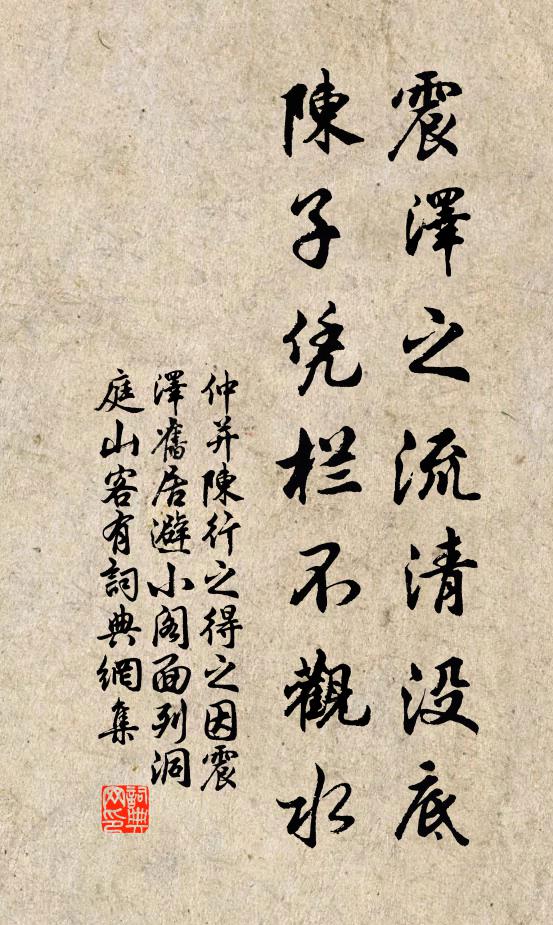 震澤之流清没底
陳子凭栏不觀水
仲并陳行之得之因震
澤舊居避小阁面列洞
庭山客有詞典網集
詞典网印